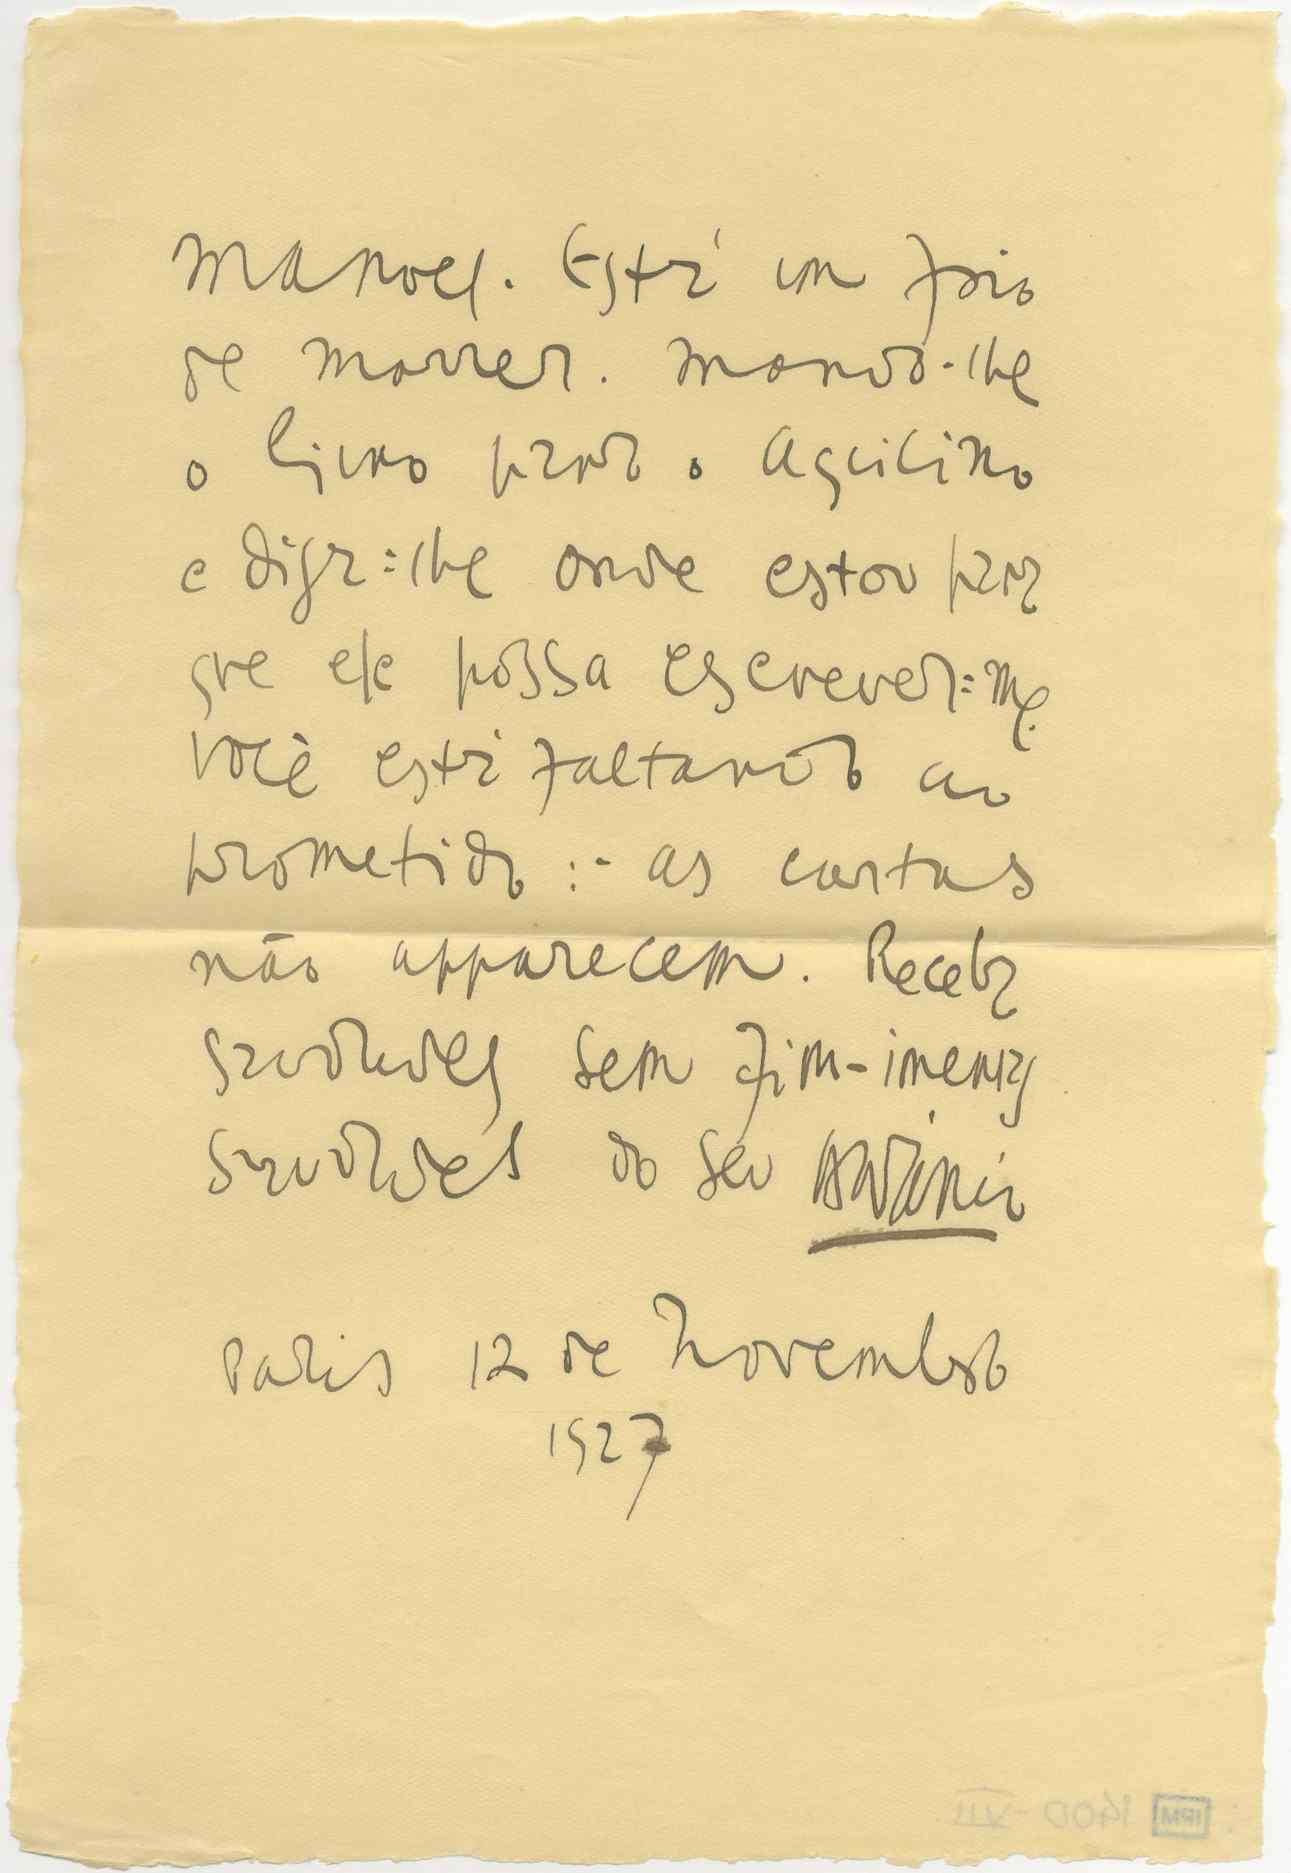 Manoel. Está um frio
de morrer. Mando-lhe
o livro para o Agilino
e diga=lhe onde estou para
que ele possa escrever=me.
Você está faltando ao
prometido :- as cartas
não apparecem. Receba
saudades sem fim-imensas
saudades do seu
Paris 12 de Novembro
1927
IPM 1400-VII